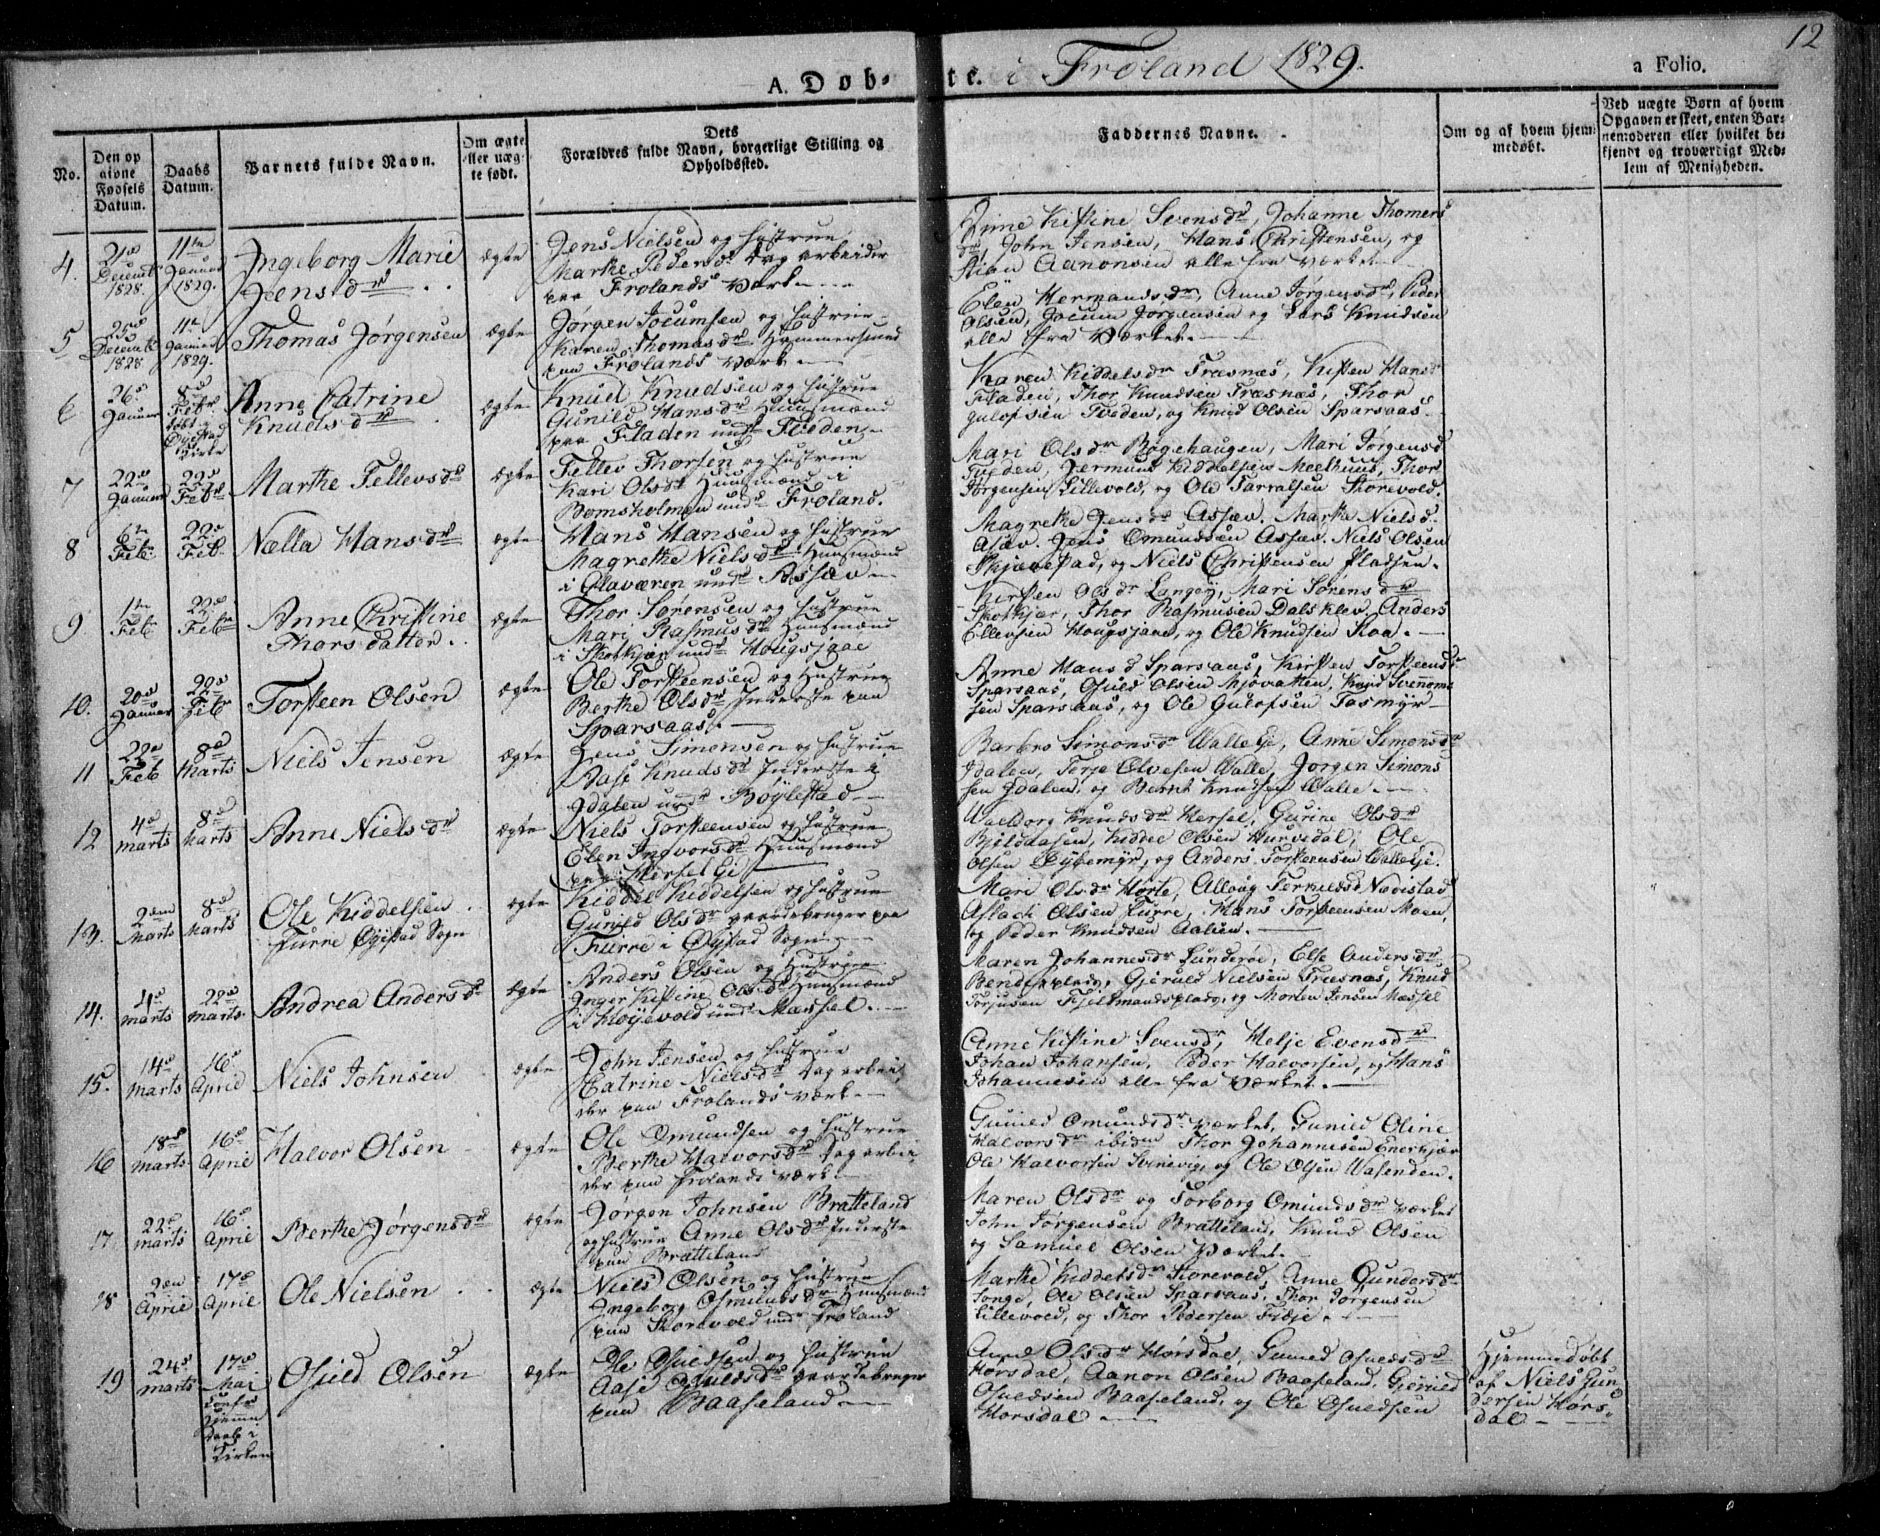 12
A. Døb-te. i Froland 1829.
a Folio.
No.
Den op
givne
Fødsels
Datum.
Daabs
Datum.
Barnets fulde Navn.
Om ægte
eller uæg-
te født.
Dets
Forældres fulde Navn, borgerlige Stilling og
Opholdssted.
Faddernes Navne.
Om og af hvem hjem-
medøbt.
Ved uægte Børn af hvem
Opgaven er skeet, enten Bar-
nemoderen eller hvilket be-
kjendt og troværdigt Med-
lem af Menigheden.
4.
21de
Decemb
1828.
11te
Januar
1829.
Ingeborg Marie
Jensdr
ægte
Jens Nielsen og Hustrue
Marthe Pedersdr Dag arbeider
paa Frolands Værk
Kistine Svensdr, Johanne Thomes
dr, John Jensen, Hans Christensen, og
Aanonsen alle fra Værket
5
25de
Decemb
1828
11te
Januar
1829.
Thomas Jørgensen
ægte
Jørgen Jocumsen og Hustrue
Karen Thomasdr Hammersmed
paa Frolands Værk
Elen Hermandsdr, Anne Jørgensdr, Peder
Olsen, Jocum Jørgensen og Lars Knudsen
alle fra Værket.
6
26de
Januar
8de
Febr
døbt i
Øyestad
Kirke
Anne Catrine
Knudsdr
ægte
Knud Knudsen og Hustrue
Gunild Hansdr Huusmænd
paa Fladen undr Tveden
Karen Kiddelsdr Træsnæs, Kisten Hansdr
Fladen, Thor Knudsen Træsnæs, Thor
Gulofsen Tveden, og Knud Olsen Sparsaas
7
22de
Januar
22de
Febr
Marthe Tellevsdr
ægte
Tellev Thorsen og Hustrue
Kari Olsdr Huusmænd i
Bomsholmen undr Froland.
Mari Olsdr Bøgehaugen, Mari Jørgensd
Tveden, Jermund Kiddelsen Meelhuus, Thor
Jørgensen Lillevold, og Ole Tarralsen Storevold.
8
6te
Feb.
22de
Feb
Nælla Hansdr
ægte
Hans Hansen og Hustrue
Magrethe Nielsdr Huusmænd
i Glaværen undr Assæv
Magrethe Jensdr Assæv, Marthe Nielsd
Asæv. Jens Omundsen Assæv. Niels Olsen
og Niels Christensen Pladsen.
9
1te
Feb.
22de
Febr
Anne Christine
Thorsdatter
ægte
Thor Sørensen og Hustrue
Mari Rasmusdr Huusmænd
i Skotkjær undr Hougsjaae
Kirsten Olsdr Langøy, Mari Sørensdr
Skotkjær, Thor Rasmusen Dalsklev, Anders
Ellevsen Hougsjaae, og Ole Knudsen Roa.
10.
20de
Januar
22de
Febr
Torsteen Olsen
ægte
Ole Torsteensen og Hustrue
Berthe Olsdr Inderste paa
Sparsaas
Anne Hansd Sparsaas, Kirsten Torsteensdr
Sparsaas, Osuld Olsen Mjøvatten, Knud Svennom
sen Sparsaas, og Ole Gulofsen Tasmyr
11
22de
Feb
8de
Marts
Niels Jensen
ægte
Jens Simensen og Hustrue
Aase Knudsdr Inderste i
Idalen undr Bøylestad
Barbro Simonsdr Walle Eje, Anne Simonsdr
Idalen, Terje Olvesen Walle, Jørgen Simons
sen Idalen, og Bernt Knudsen Walle.
12
4de
Marts
8de
Marts
Anne Nielsdr
ægte
Niels Torsteensen og Hustrue
Elen Ingvorsdr Huusmænd
paa Hersel Ei
Waleborg Knudsdr Hersel, Gurine Olsdr
Bjildaasen, Kiddel Olsen Hurvedal, Ole
Olsen og Anders Torsteensen Walle Eje.
13.
2den
Marts
8de
Marts
Ole Kiddelsen
Furre Øyestad Sogn
ægte
Kiddel Kiddelsen og Hustrue
Gunild Olsdr gaardebruger paa
Furre i Øyestad Sogn
Mari Olsdr Hørte, Alloug Terkelsd Navestad
Aslach Olsen Furre, Hans Torsteensen Moen,
og Peder Knudsen Aalien.
14.
4de
Marts
22de
Marts
Andrea Andersdr
ægte
Anders Olsen og Hustrue
Inger Kistine Olsdr Huusmænd
i Høyevold undr Mæssel.
Maren Johannesdr Lunderøe, Else Andersdr
Bendixplads, Gjeruld Nielsen Træsnæs, Knud
Torjusen Fjeldmandsplads, og Morten Jensen Mæssel
15.
14de
Marts
16de
April
Niels Johnsen
ægte
John Jensen og Hustrue
Catrine Nielsdr Dag arbei
der paa Frolands Værk
Anne Kistine Svensdr, Helje Evensdr
Johan Johansen, Peder Halvorsen, og Hans
Johannesen alle fra Værket.
16
18de
Marts
16de
April
Halvor Olsen
ægte
Ole Omundsen og Hustrue
Berthe Halvorsdr Dag arbei
der paa Frolands Værk
Gunild Omundsdr Værket, Gunild Oline
Halvorsdr ibidem Thor Johannesen Enerkjær
Ole Halvorsen Svinevig, og Ole Olsen Wasenden.
17
22de
Marts
16de
April
Berthe Jørgensdr
ægte
Jørgen Johnsen Bratteland
og Hustrue Anne Olsdr Inderste
paa Bratteland
Maren Olsdr og Torborg Omundsdr Værket
John Jørgensen Bratteland, Knud Olsen
og Samuel Olsen Værket.
18
2den
April
17de
April
Ole Nielsen
ægte
Niels Olsen og Hustrue
Ingeborg Osmundsdr Huusmænd
paa Storevold undr Froland
Marthe Kiddelsdr Storevold, Anne Gundersdr
Songe, Ole Olsen Sparsaas, Thor Jørgensen
Lillevold, og Thor Pedersen Fidje.
19
24de
Marts
17de
Mai
Conf.
Hjemme
daab i
Kirken
Osuld Olsen
ægte
Ole Osuldsen og Hustrue
Aase Osuldsdr gaardebruger
paa Baaseland
Anne Olsdr Horsdal, Gunild Osuldsdr
Horsdal, Aanon Olsen Baaseland, Gjeruld
Osuldsen Baaseland, og Ole Osuldsen
Horsdal
Hjemmedøbt
af Niels Gun
dersen Hors
dal